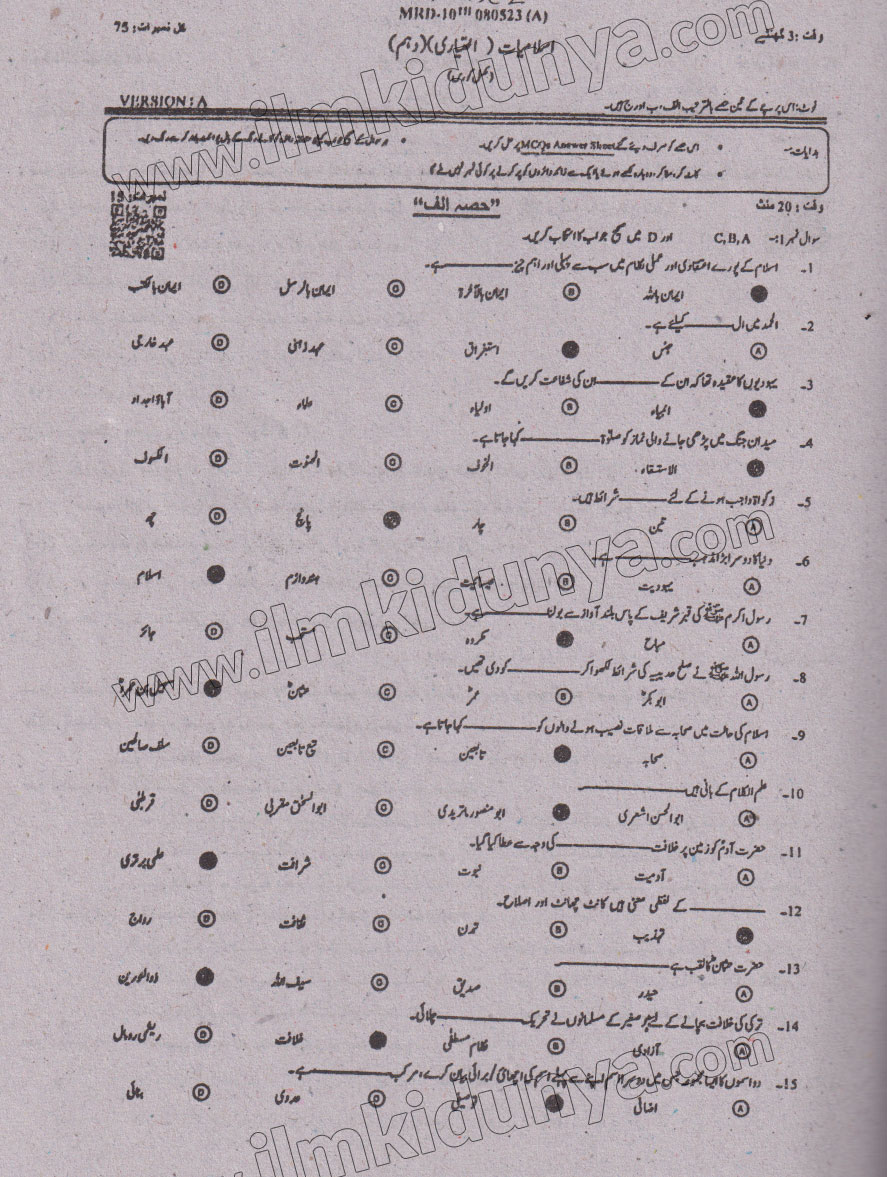 MRD-10TH 080523 (A)
وقت : 3 گھنٹے کل نمبرات : 75
اسلامیات ( اختیاری )(دہم)
(مکمل کورس)
VERSION : A
نوٹ: اس پرچے کے تین حصے بالترتیب الف، ب اور ج ہیں۔
ہدایات:- • اس حصے کو صرف دیئے گئے MCQs Answer Sheet پر حل کریں۔ • ہر سوال کے
وقت : 20 منٹ "حصہ الف" نمبرات : 15
سوال نمبر 1:- C,B,A اور D میں صحیح جواب کا انتخاب کریں۔
1۔ اسلام کے پورے اعتقادی اور عملی نظام میں سب سے پہلی اور اہم چیز ________ ہے۔
ایمان باللہ B ایمان بالآخرۃ C ایمان بالرسل D ایمان بالکتب
2۔ الحمد میں ال ________ کیلئے ہے۔
A جنس استغراق C عہد ذہنی D عہد خارجی
3۔ یہودیوں کا عقیدہ تھا کہ ان کے ________ ان کی شفاعت کریں گے۔
انبیاء B اولیاء C علماء D آباؤ اجداد
4۔ میدان جنگ میں پڑھی جانے والی نماز کو صلوٰۃ ________ کہا جاتا ہے۔
الاستسقاء B الخوف C الحنوت D الکسوف
5۔ زکواۃ واجب ہونے کے لئے ________ شرائط ہیں۔
A تین B چار پانچ D چھ
6۔ دنیا کا دوسرا بڑا مذہب ________ ہے
A یہودیت B عیسائیت C ہندوازم اسلام
7۔ رسول اکرم ﷺ کی قبر شریف کے پاس بلند آواز سے بولنا ________ ہے۔
A مباح مکروہ C مستحب D جائز
8۔ رسول اللہ ﷺ نے صلح حدیبیہ کی شرائط لکھوا کر ________ کو دی تھیں۔
A ابوبکرؓ B عمرؓ C عثمانؓ سہیل ابن عمروؓ
9۔ اسلام کی حالت میں صحابہ سے ملاقات نصیب ہونے والوں کو ________ کہا جاتا ہے۔
A صحابہ تابعین C تبع تابعین D سلف صالحین
10۔ علم الکلام کے بانی ہیں ________
A ابوالحسن اشعری ابو منصور ماتریدی C ابو اسحٰق مغربی D قرطبی
11۔ حضرت آدمؑ کو زمین پر خلافت ________ کی وجہ سے عطا کیا گیا۔
A آدمیت B نبوت C شرافت علمی برتری
12۔ ________ کے لفظی معنی ہیں کانٹ چھانٹ اور اصلاح۔
تہذیب B تمدن C ثقافت D رواج
13۔ حضرت عثمانؓ کا لقب ہے ________
A حیدر B صدیق C سیف اللہ ذوالنورین
14۔ ترکی کی خلافت بچانے کے لیے برصغیر کے مسلمانوں نے تحریک ________ چلائی۔
A آزادی B نظام مصطفیٰ خلافت D ریشمی رومال
15۔ دو اسموں کا ایسا مجموعہ جس میں دوسرا اسم اپنے سے پہلے اسم کی اچھائی / برائی بیان کرے، مرکب ________ ہے۔
A اضافی توصیفی C عددی D بنائی
www.ilmkidunya.com
www.ilmkidunya.com
www.ilmkidunya.com